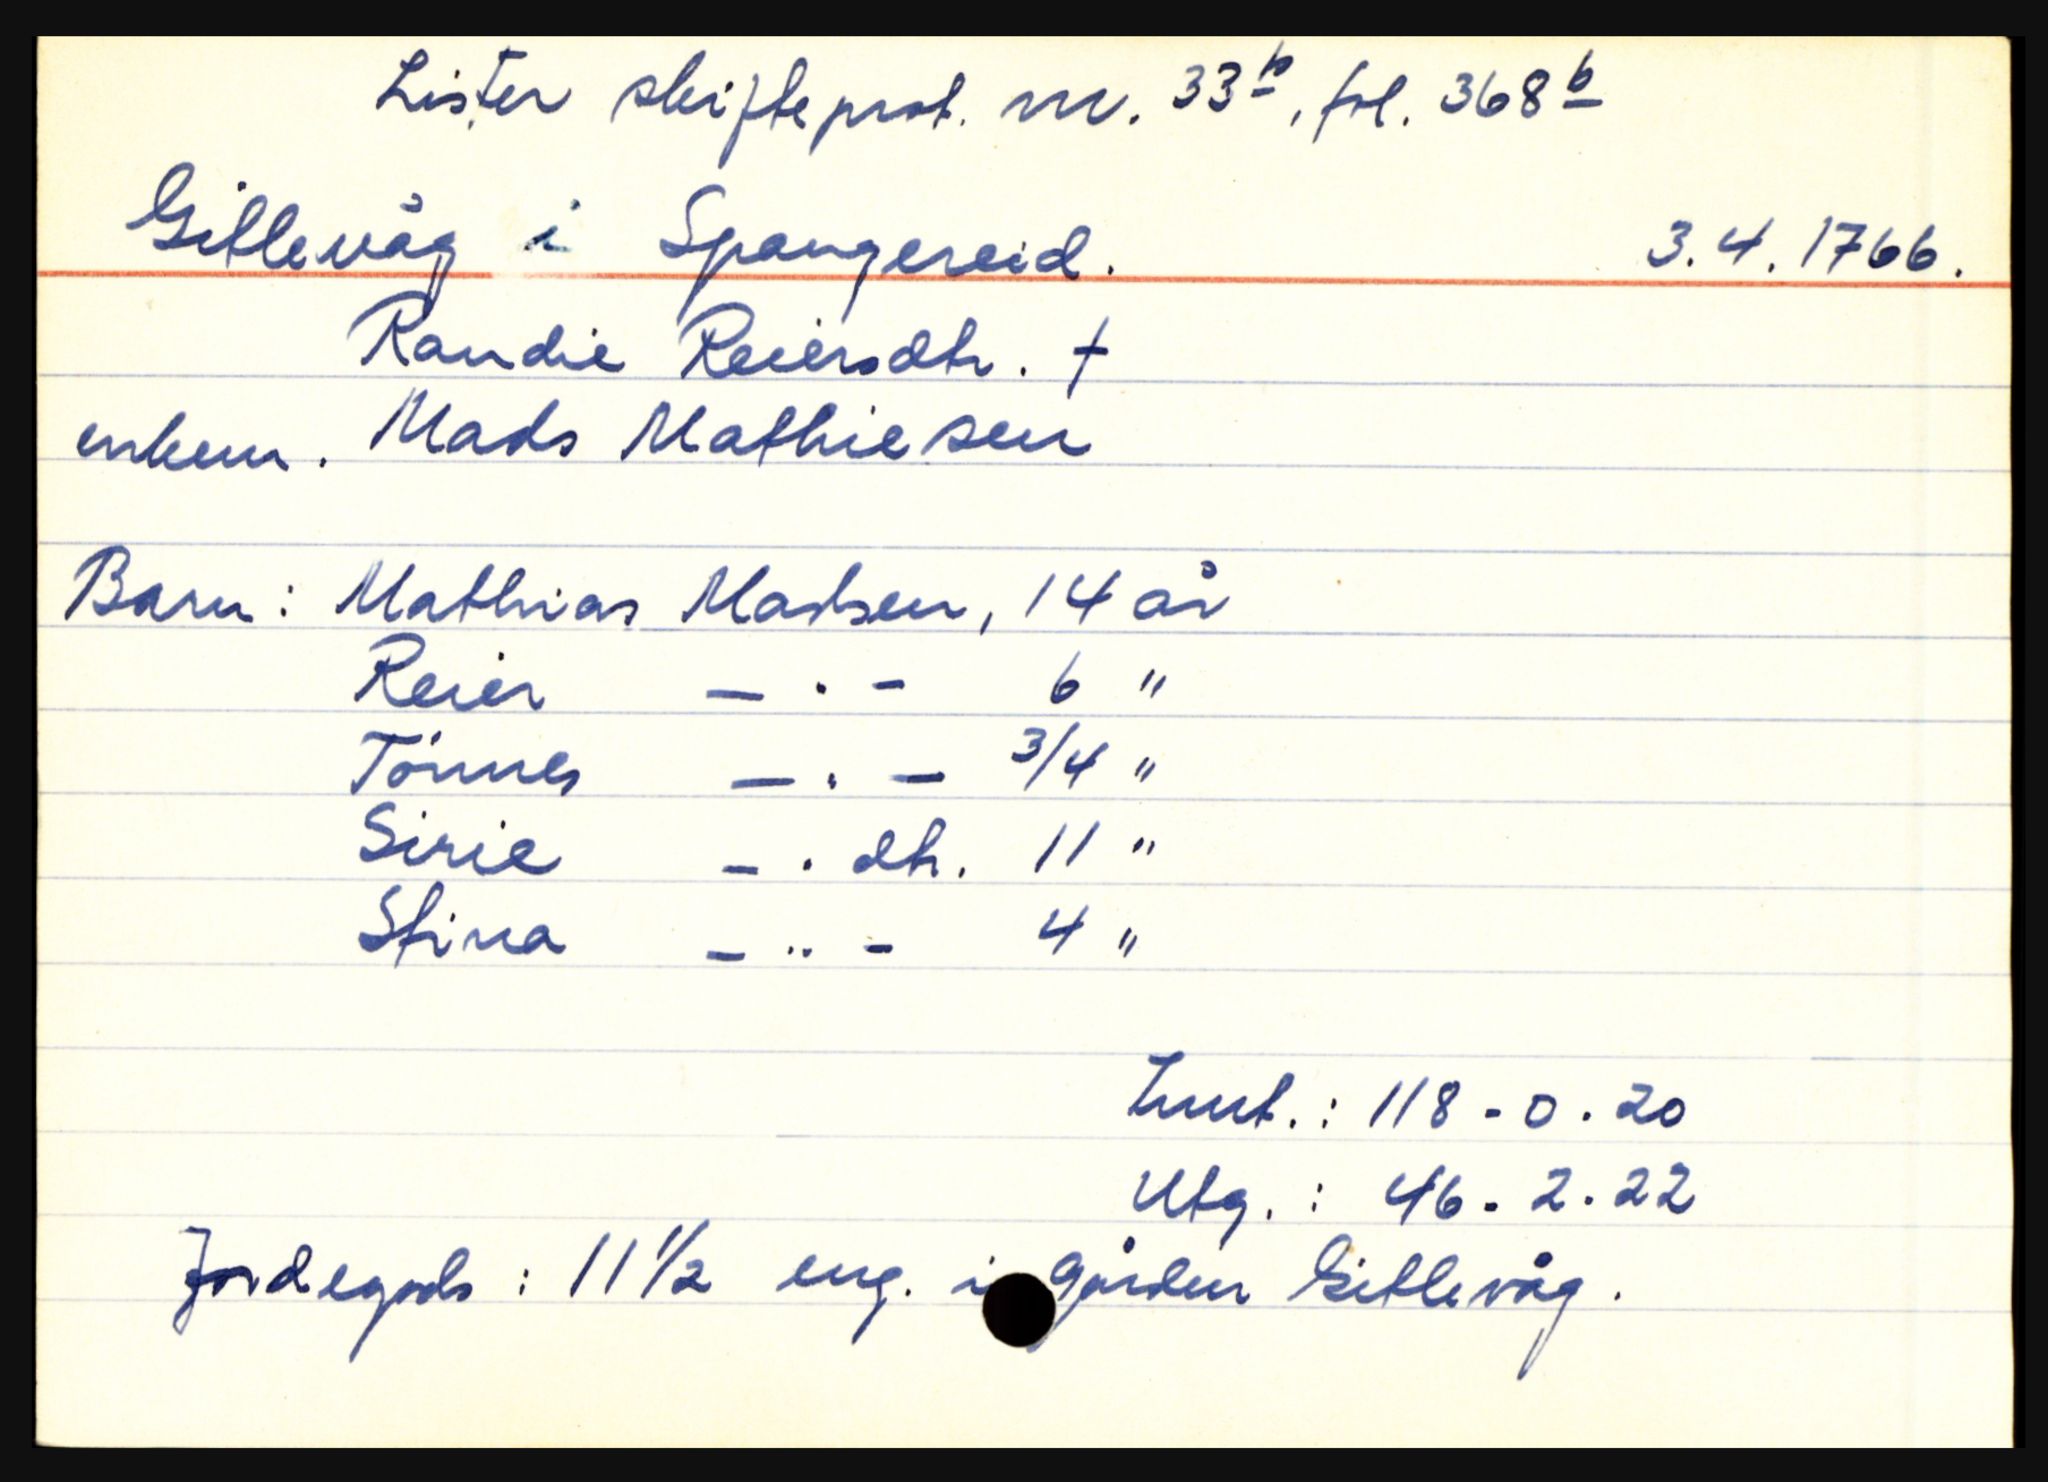 Lister skifteprot. nr. 33b, fol. 368b
Gitlevåg i Spangereid. 3.4.1766.
Randie Reiersdtr. †
enkem. Mads Mathiesen
Barn: Mathias Madsen, 14 år
Reier — . — 6 "
Tönnes — . — 3/4 "
Sirie — . dtr. 11 "
Stina — .. — 4 "
Innt.: 118 - 0 . 20
Utg. : 46 . 2 . 22
Jordegods : 11 1/2 eng. i gården Gitlevåg.